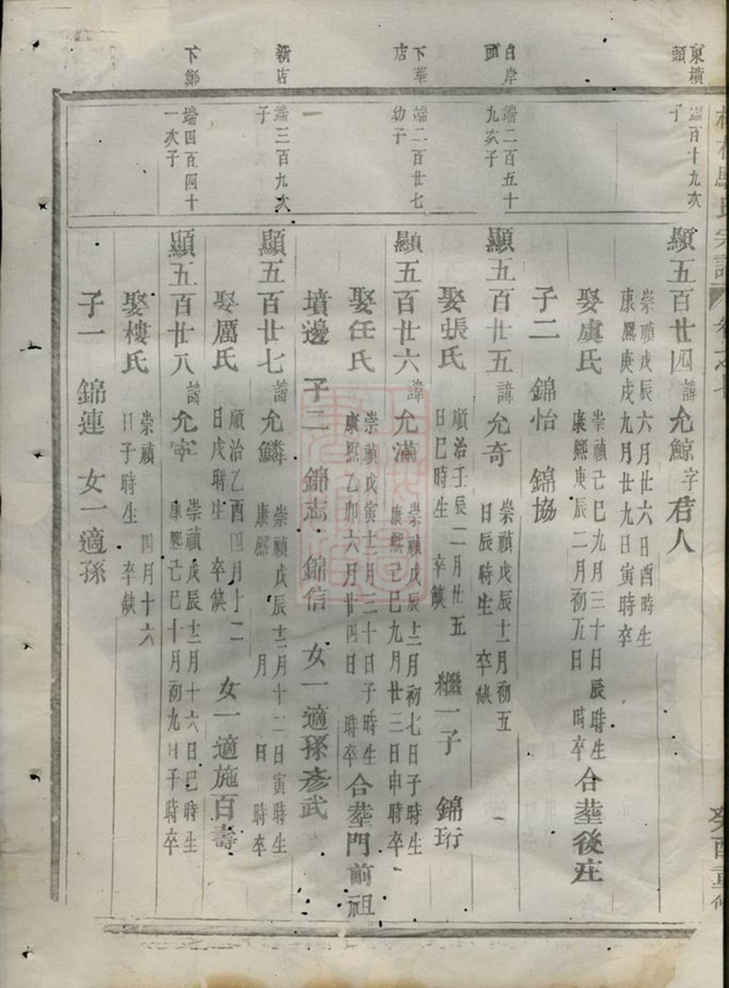 東橫頭
端百十九次子
顯五百廿四諱允鯨字君人
崇禎戊辰六月廿六日酉時生
康熙庚戌九月廿九日寅時卒
娶虞氏
崇禎己巳九月三十日辰時生
康熙庚辰二月初五日 時卒
合塟後庄
子二 錦怡 錦協
白岸頭
端二百五十九次子
顯五百廿五諱允奇
崇禎戊辰十一月初五
日辰時生 卒缺
娶張氏
順治壬辰二月廿五
日巳時生 卒缺
繼一子 錦珩
下華店
端二百廿七幼子
顯五百廿六諱允滿
崇禎戊辰十二月初七日子時生
康熙己巳九月廿三日申時卒
娶任氏
崇禎戊寅十二月三十日子時生
康熙乙卯六月廿四日 時卒
合塟門前祖
墳邊 子二 錦志 錦信 女一適孫彥武
新店
端三百九次子
顯五百廿七諱允鱗
崇禎戊辰十二月十二日寅時生
康熙 月 日 時卒
娶厲氏
順治乙酉四月十二
日戌時生 卒缺
女一適施百壽
下鄭
端四百四十一次子
顯五百廿八諱允宰
崇禎戊辰十二月十六日巳時生
康熙己巳十月初九日子時卒
娶樓氏
崇禎 四月十六
日子時生 卒缺
子一 錦連 女一適孫